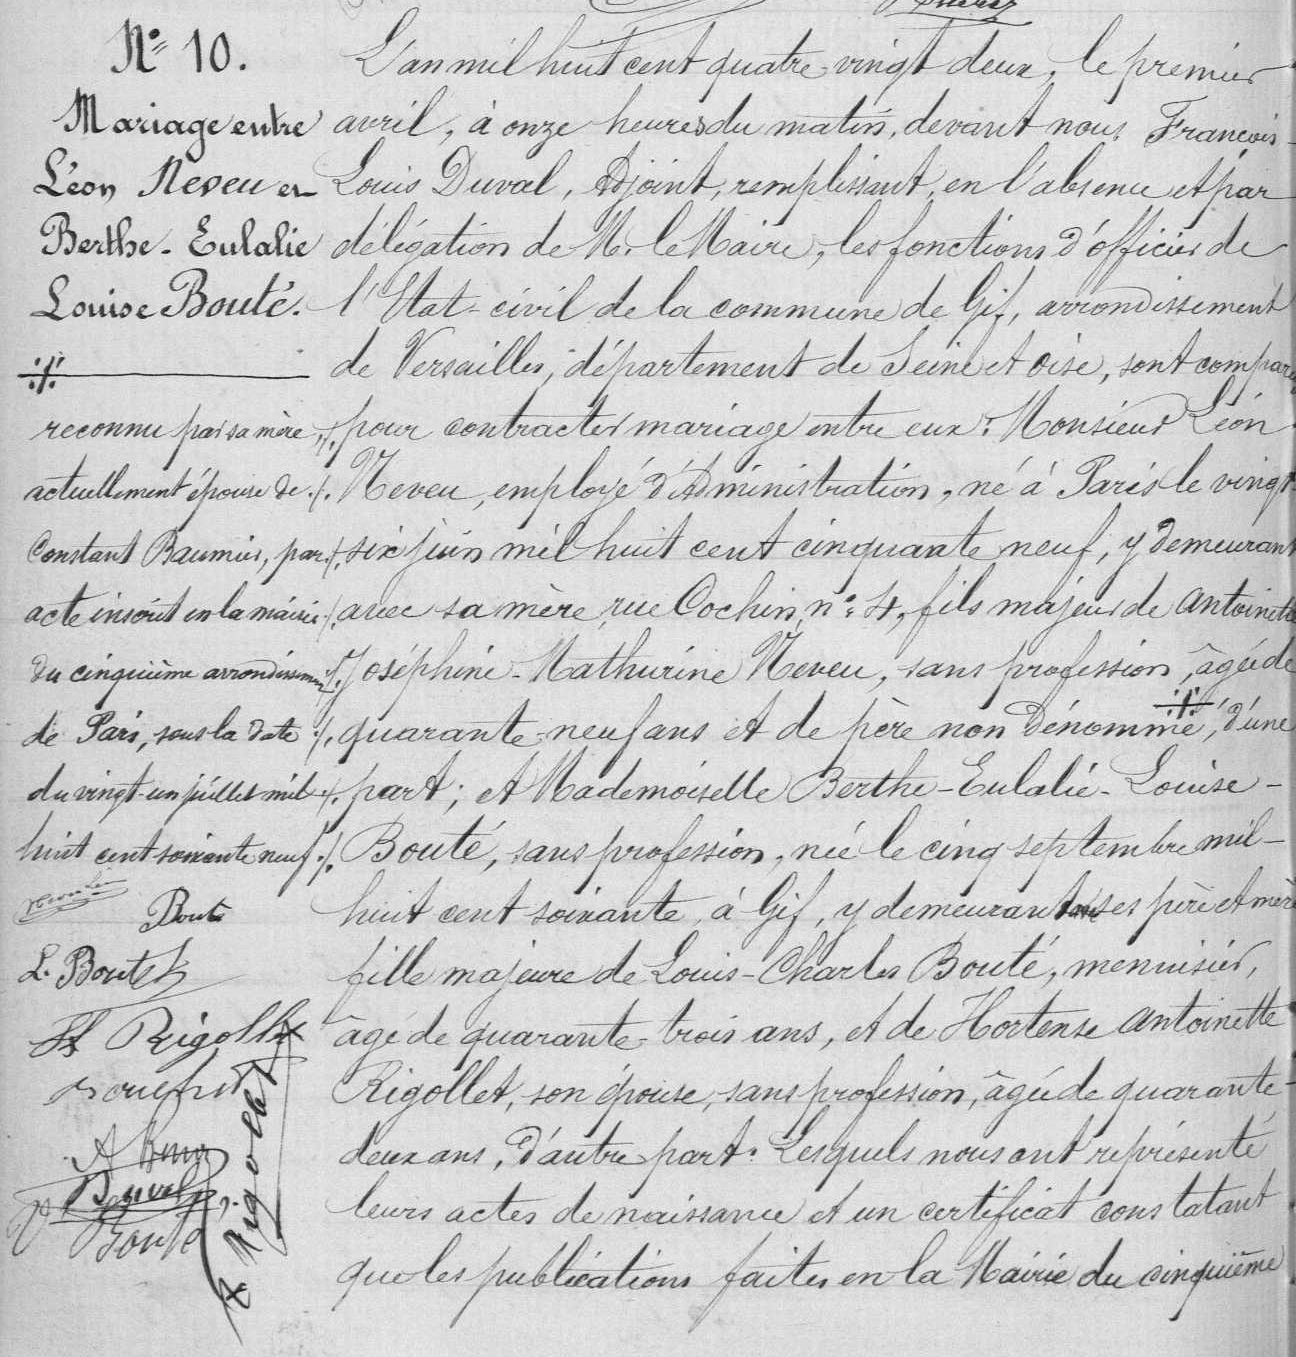 N° 10.
Mariage entre
Léon Neveu et
Berthe-Eulalie
Louise Bouté.
L'an mil huit cent quatre-vingt deux, le premier
avril, à onze heures du matin, devant nous François-
Louis Duval, Adjoint, remplissant, en l'absence et par
délégation de M. le Maire, les fonctions d'officier de
l'Etat-civil de la commune de Gif, arrondissement
de Versailles, département de Seine et Oise, sont comparus
pour contracter mariage entre eux: Monsieur Léon
Neveu, employé d'Administration, né à Paris le vingt-
six juin mil huit cent cinquante neuf, y demeurant
avec sa mère, rue Cochin, n° 4, fils majeur de Antoinette
Joséphine-Mathurine Neveu, sans profession, âgée de
quarante-neuf ans et de père non dénommé ./. , d'une
part; et Mademoiselle Berthe-Eulalie-Louise-
Bouté, sans profession, née le cinq septembre mil-
huit cent soixante, à Gif, y demeurant ses père et mère
fille majeure de Louis-Charles Bouté, menuisier,
âgé de quarante-trois ans, et de Hortense Antoinette
Rigollet, son épouse, sans profession, âgée de quarante-
deux ans, d'autre part. Lesquels nous ont représenté
leurs actes de naissance et un certificat constatant
que les publications faites en la Mairie du cinquième
./.
reconnu par sa mère, ./.
actuellement épouse de ./.
Constant Baumier, par ./.
acte inscrit en la mairie ./.
du cinquième arrondissement ./.
de Paris, sous la date ./.
du vingt-un juillet mil ./.
huit cent soixante neuf ./.
Bouté
L. Bouté
Rigollet
Duval
Bouté
Rigollet